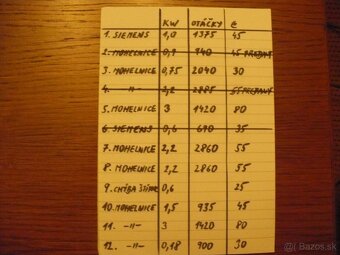 KW OTÁČKY €
1. SIEMENS 1,0 1375 45
2. MOHELNICE 0,9 940 45 PREDANÝ
3. MOHELNICE 0,75 2040 30
4. -"- 2,2 2885 55 PREDANÝ
5. MOHELNICE 3 1420 80
6. SIEMENS 0,6 690 35
7. MOHELNICE 2,2 2860 55
8. MOHELNICE 2,2 2860 55
9. CHÝBA ŠTÍTOK 0,6 25
10. MOHELNICE 1,5 935 45
11. -"- 3 1420 80
12. -"- 0,18 900 30
Bazos.sk